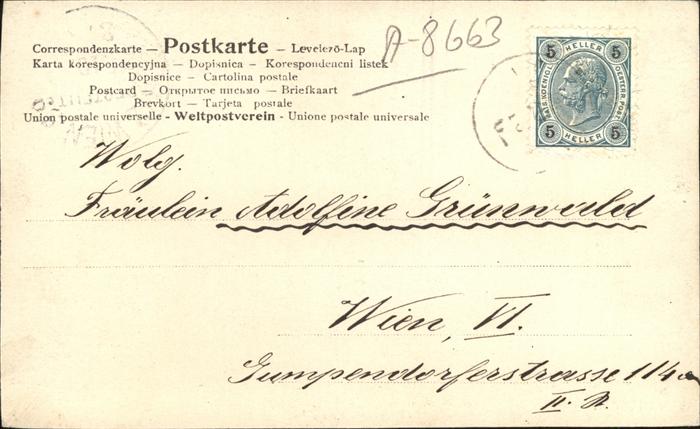 A-8663
Correspondenzkarte — Postkarte — Levelező-Lap
Karta korespondencyjna — Dopisnica — Korespondencni listek
Dopisnice — Cartolina postale
Postcard — Открытое письмо — Briefkaart
Brevkort — Tarjeta postale
Union postale universelle - Weltpostverein - Unione postale universale
5 HELLER 5
KAIS. KOENIGL. OESTERR. POST.
5 HELLER 5
Wolg.
Fräulein Adolfine Grünwald
Wien, VI.
Gumpendorferstrasse 114a
II. St.